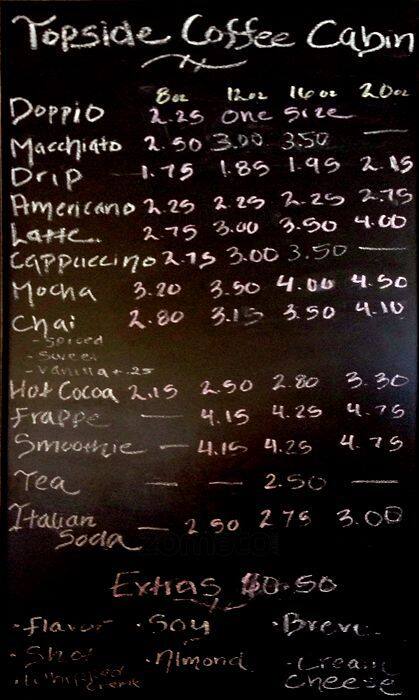 Topside Coffee Cabin
8oz 12oz 16oz 20oz
Doppio 2.25 one size
Macchiato 2.50 3.00 3.50 —
Drip 1.75 1.85 1.95 2.15
Americano 2.25 2.25 2.25 2.75
Latte 2.75 3.00 3.50 4.00
Cappuccino 2.75 3.00 3.50 —
Mocha 3.20 3.50 4.00 4.50
Chai 2.80 3.15 3.50 4.10
- Spiced
- Sweet
- Vanilla + .25
Hot Cocoa 2.15 2.50 2.80 3.30
Frappe — 4.15 4.25 4.75
Smoothie — 4.15 4.25 4.75
Tea — — 2.50 —
Italian Soda — 2.50 2.75 3.00
Extras $0.50
• Flavor • Soy • Breve
• Shot • Almond • Cream Cheese